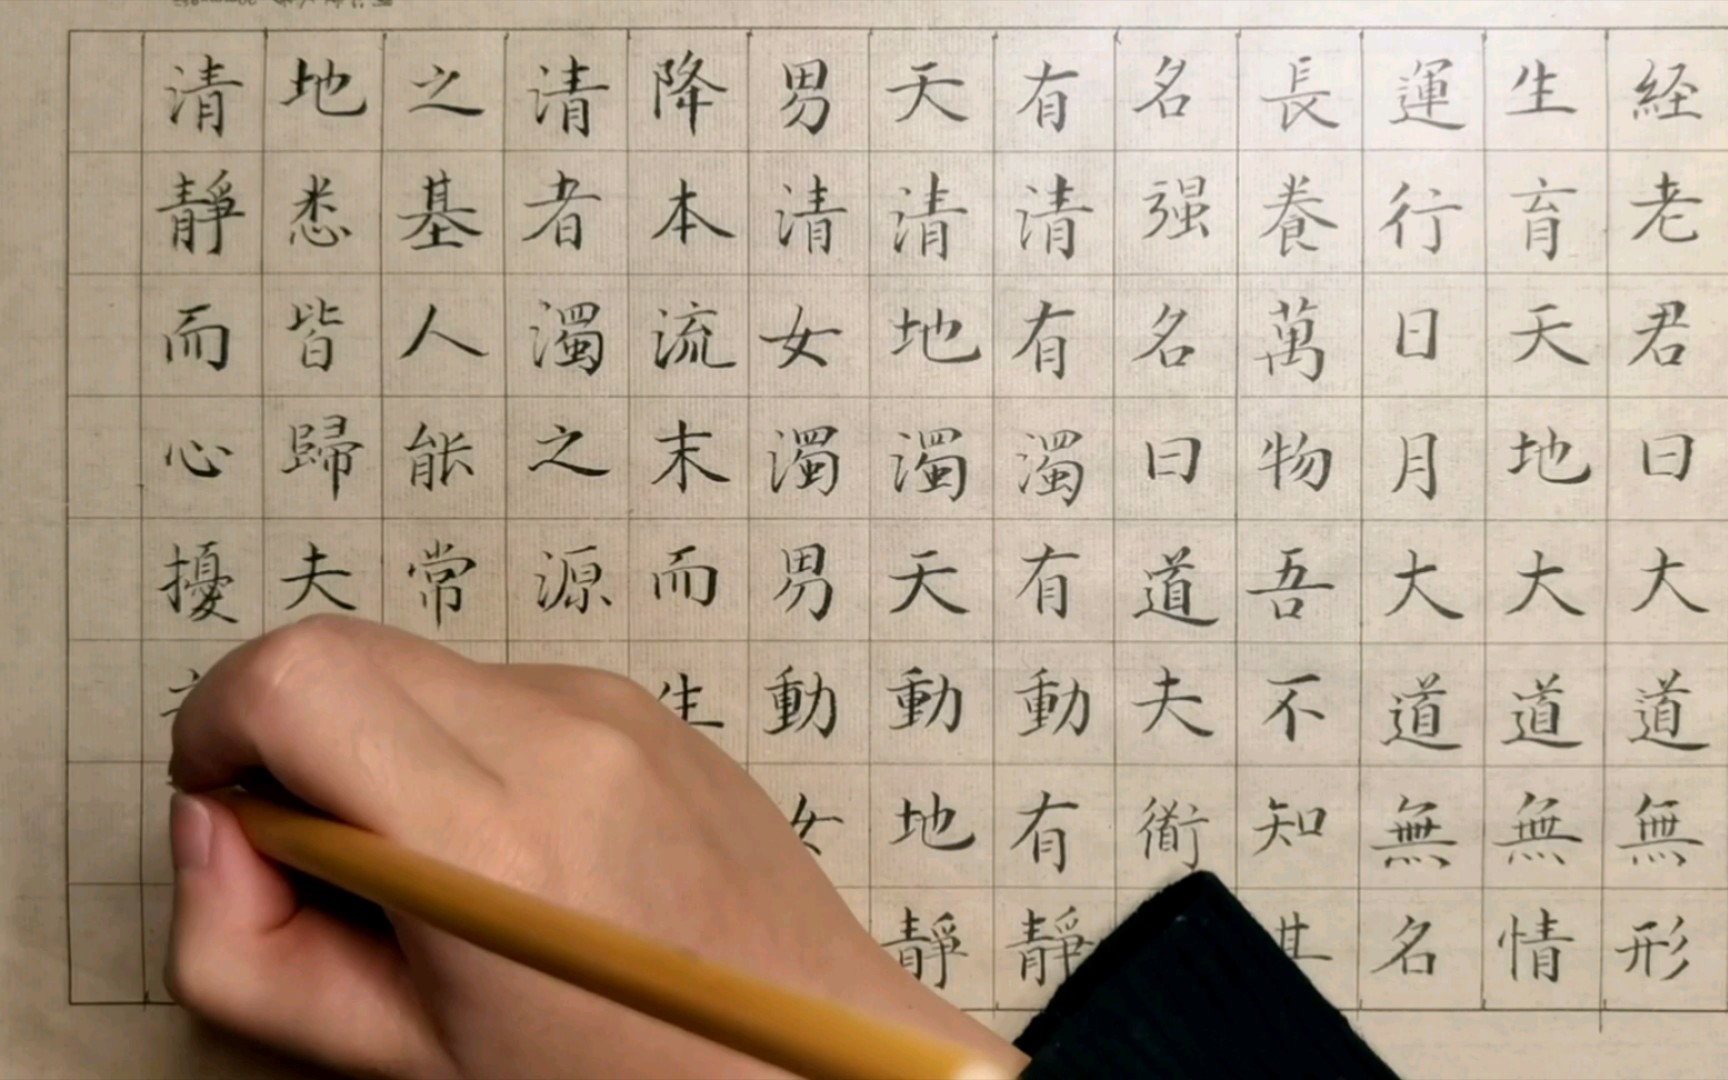 経老君曰大道無形
生育天地大道無情
運行日月大道無名
長養萬物吾不知其
名强名曰道夫衜
有清有濁有動有靜
天清地濁天動地靜
男清女濁男動女
降本流末而生
清者濁之源
之基人能常
地悉皆歸夫
清靜而心擾